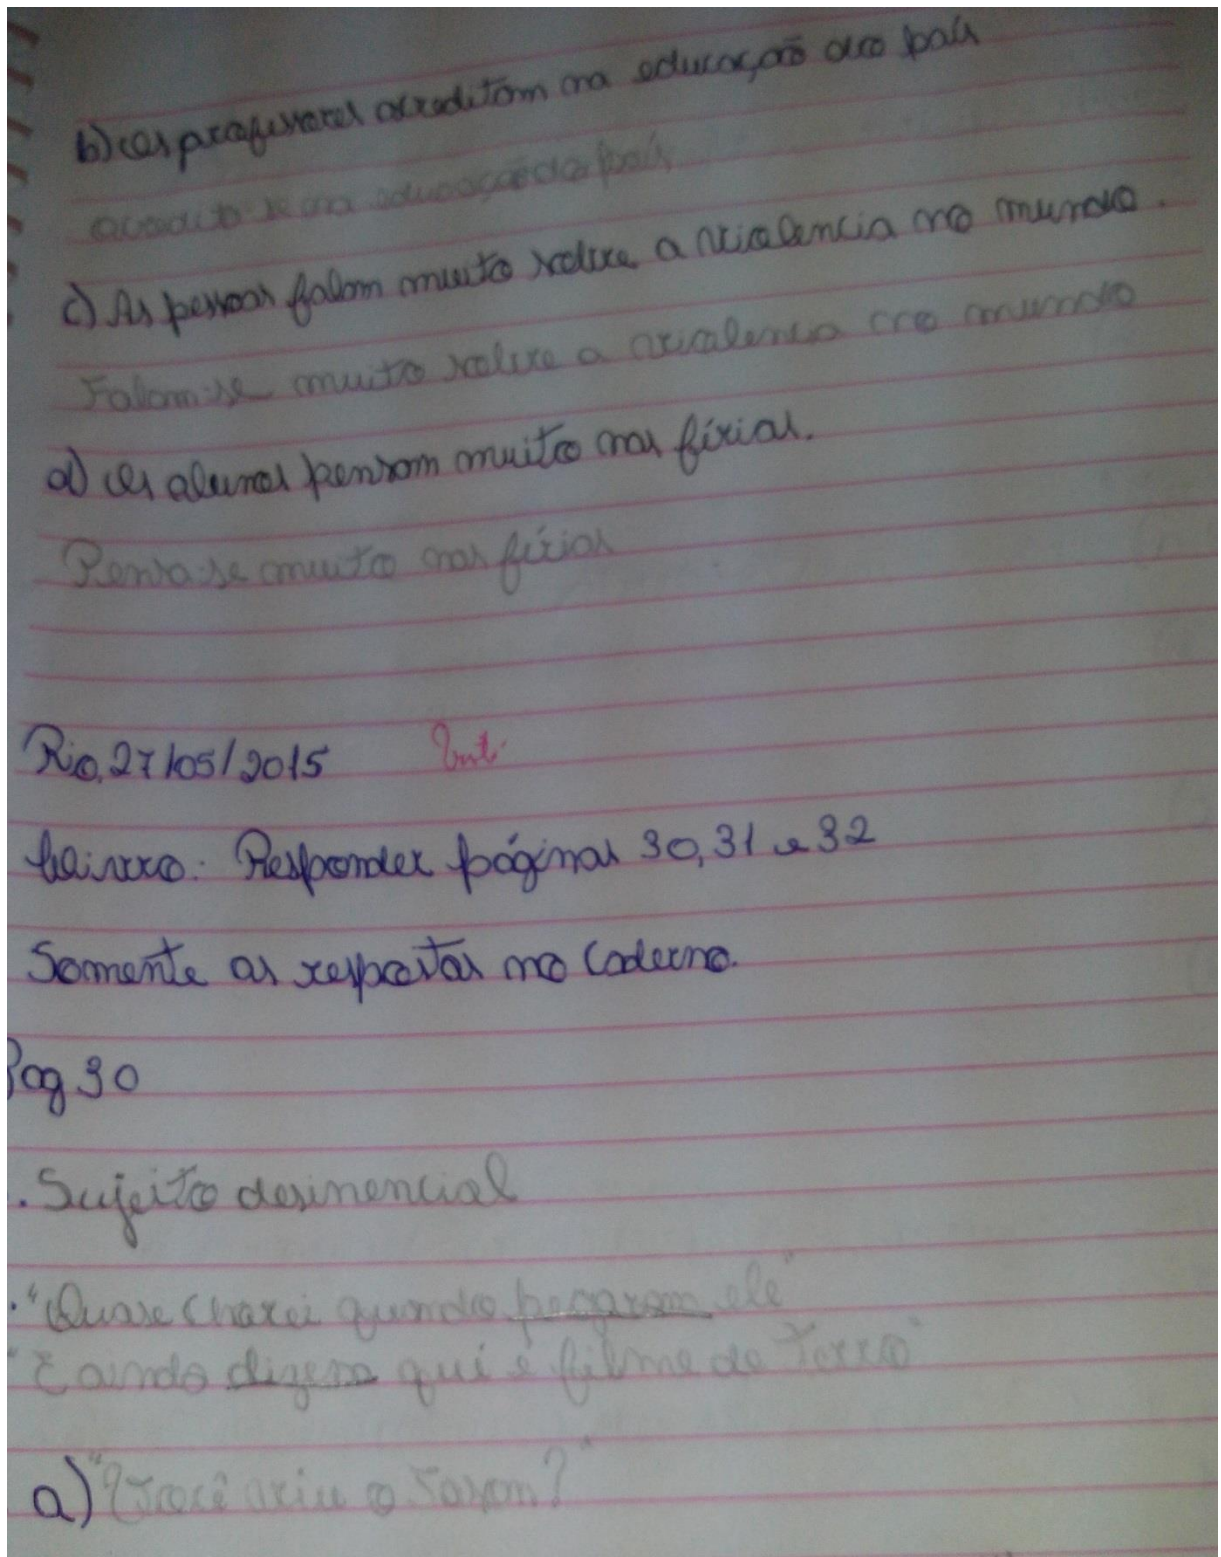 b) Os professores acreditam na educação do país
acredita-se na educação do país
c) As pessoas falam muito sobre a violencia no mundo.
Falam-se muito sobre a violencia no mundo
d) Os alunos pensam muito nas férias.
Pensa-se muito nas férias
Rio, 27/05/2015
Livro: Responder páginas 30, 31 e 32
Somente as respostas no Caderno.
Pag 30
. Sujeito desinencial
. "Quase chorei quando pegaram ele"
"E ainda dizem qui é filme de Terro"
a) "Você viu o